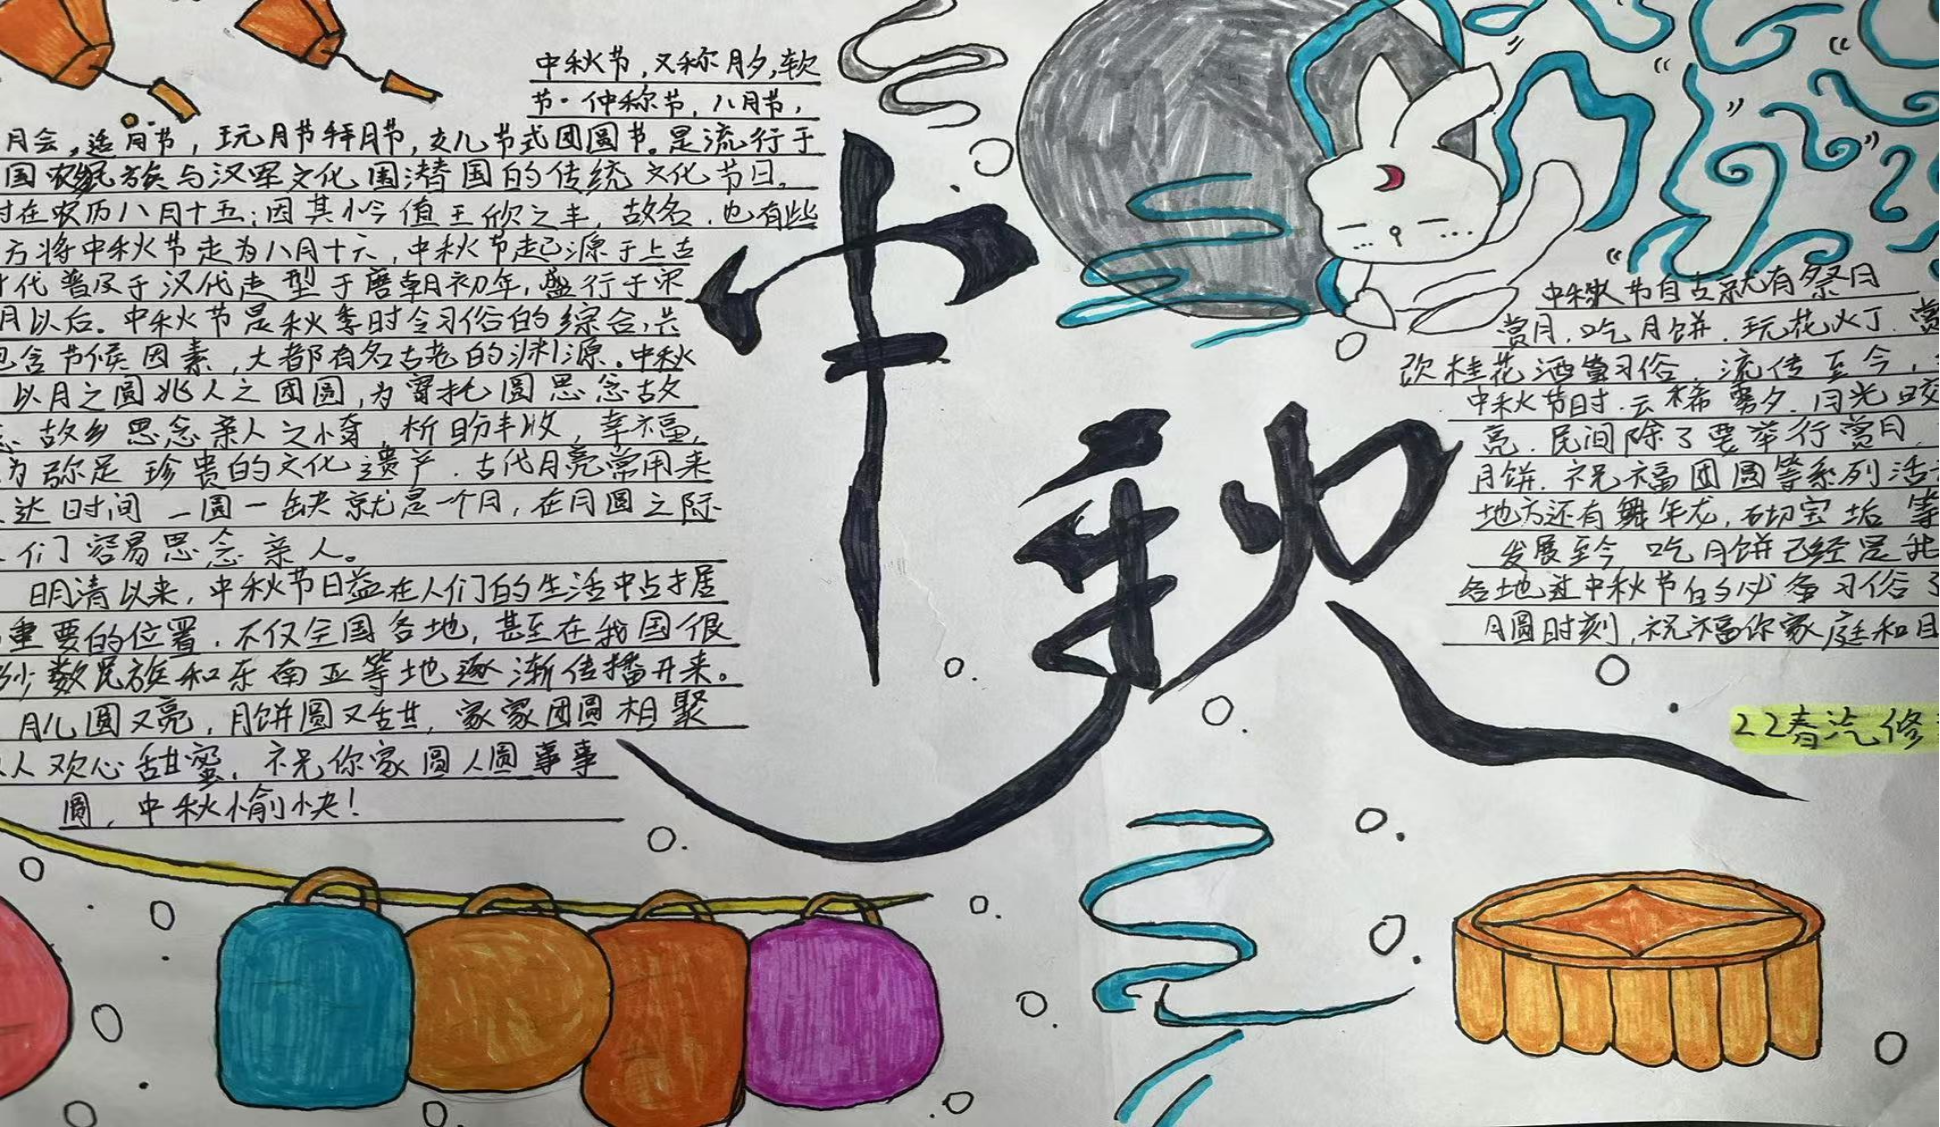 中秋节,又称月夕,软
节·仲称节,八月节,
月会,追月节,玩月节拜月节,女儿节式团圆节。是流行于
国农民族与汉军文化国潜国的传统文化节日。
时在农历八月十五;因其小今值王欣之丰,故名.也有些
方将中秋节走为八月十六,中秋节起源于上古
时代普及于汉代走型于磨朝初年,盛行于宋
月以后。中秋节是秋季时令习俗的综合,共
包含节候因素,大都有名古老的渊源。中秋
以月之圆兆人之团圆,为寄托圆思念故
故乡思念亲人之情,祈盼丰收,幸福,
为弥足珍贵的文化遗产.古代月亮常用来
达时间一圆一缺就是一个月,在月圆之际
们容易思念亲人。
明清以来,中秋节日益在人们的生活中占据
重要的位置.不仅全国各地,甚至在我国很
少数民族和东南亚等地逐渐传播开来。
月儿圆又亮,月饼圆又甜,家家团圆相聚
人欢心甜蜜,祝你家圆人圆事事
圆,中秋愉快!
中秋
中秋节自古就有祭月
赏月.吃月饼.玩花火丁.赏
饮桂花酒等习俗,流传至今,
中秋节时.云稀雾夕.月光皎
亮.民间除了要举行赏月
月饼.祝福团圆等系列活
地方还有舞年龙,砌宝垢等
发展至今吃月饼已经是我
各地过中秋节的必备习俗了
月圆时刻,祝福你家庭和
22春汽修